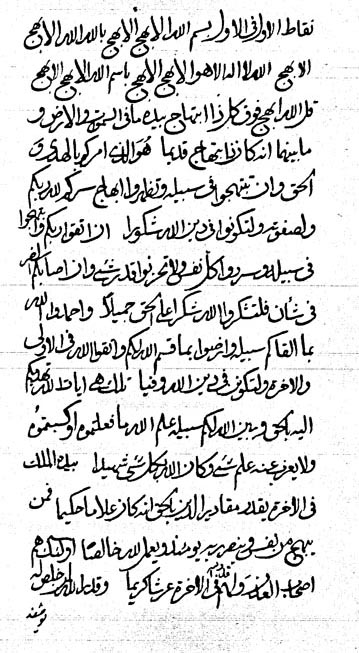 نقاط الاولی فی الاول بسم الله الابهج الابهج بالله الله الابهج
الابهج الله لا اله الا هو الابهج الابهج باسم الله الابهج الابهج
قل الله ابهج فوق كل ذا ابتهاج بيده ما فى السموت والارض و
ما بينهما انه كان ذا بتهاج قديما هو الذى امركم بالهدى و
الحق وان تبتهجوا فى سبيله وتظهروا ابهاج سركم لله ربكم
ولصفوته ولتكونوا فى دين الله شكورا ان اتقوا ربكم وابتهجوا
فى سبيله وسرروا كل نفس ولا تحزنوا قدر شئ وان اصابكم الضر
فى شان فلتشكروا الله شكرا على الحق جميلا واحمدوا الله
بما القاكم سبيله وارضوا بما قسم الله لكم واتقوا الله فى الاولى
والاخرة ولتكونن فى دين الله وفيا تلك هى ايات الله تهديكم
اليه بالحق ويبين الله لكم سبيله علم الله ما تعلموه او كسبتموه
ولا يعزب عنه علم شئ وكان الله بكل شئ شهيدا بيده الملك
فى الاخرة يقدر مقادير الدين بالحق انه كان علاما حكيما فمن
يبهج من نفس وينصر به يومئذ ويعمل لله خالصا اولئك هم
اصحاب ولهم فى الاخرة عرشا كريما وقل